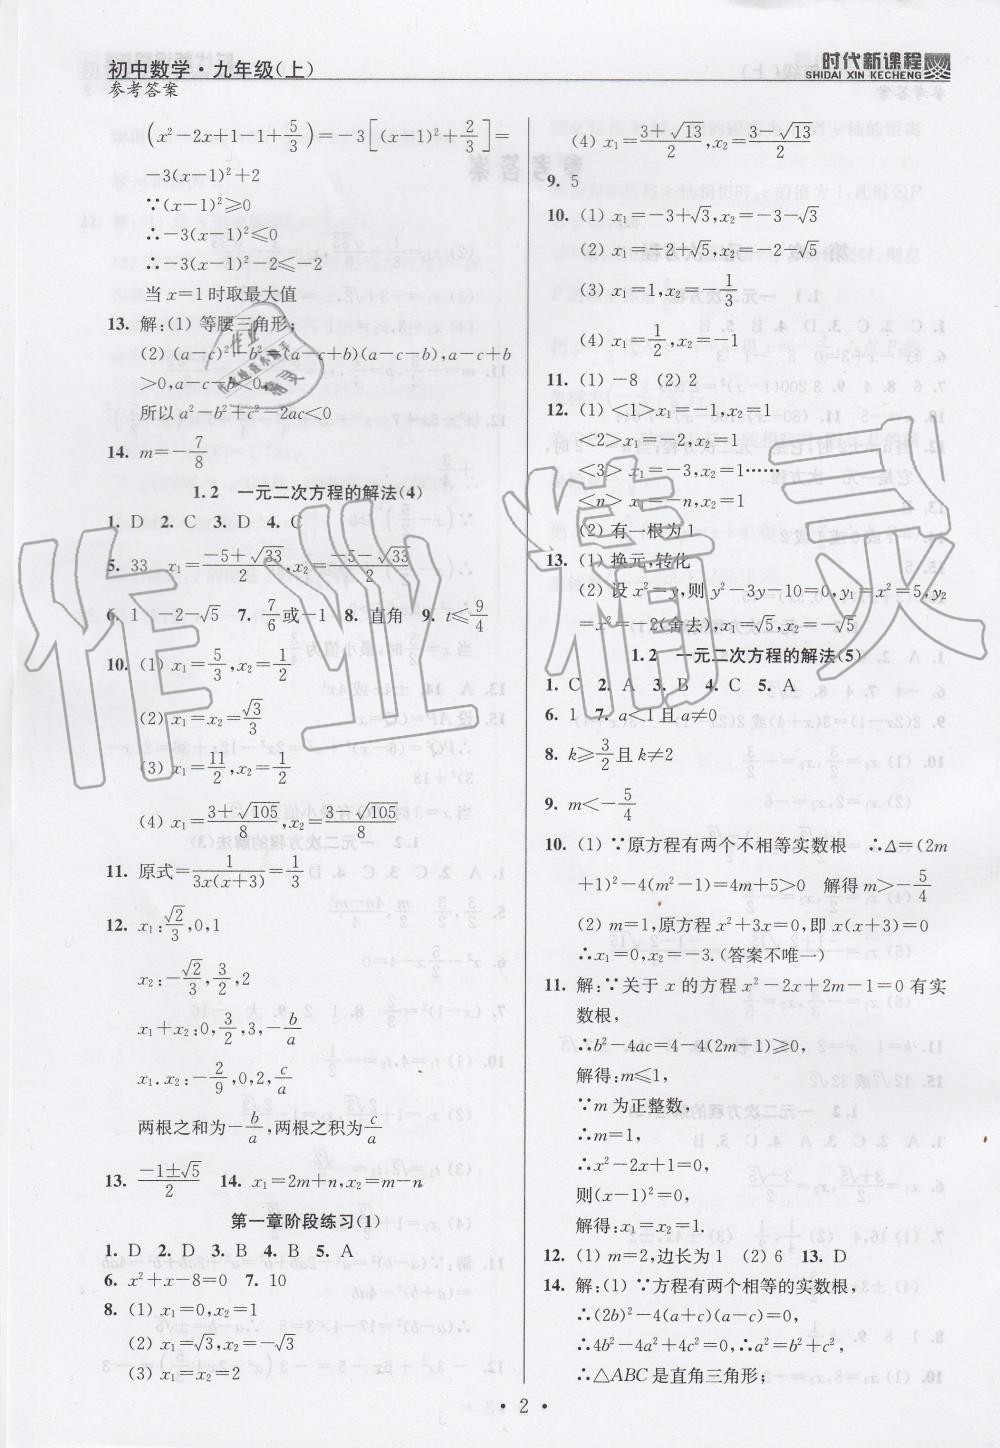 初中数学·九年级(上)
参考答案
时代新课程
SHIDAI XIN KECHENG
(x²-2x+1-1+5/3)=-3[(x-1)²+2/3]=
-3(x-1)²+2
∵(x-1)²≥0
∴-3(x-1)²≤0
∴-3(x-1)²-2≤-2
当x=1时取最大值
13. 解:(1) 等腰三角形;
(2) (a-c)²-b²=(a-c+b)(a-c-b),a-c+b
>0,a-c-b<0,
所以a²-b²+c²-2ac<0
14. m=-7/8
1.2 一元二次方程的解法(4)
1. D 2. C 3. D 4. C
5. 33 x₁=(-5+√33)/2,x₂=(-5-√33)/2
6. 1 -2-√5 7. 7/6或-1 8. 直角 9. t≤9/4
10. (1) x₁=5/3,x₂=1/2
(2) x₁=x₂=√3/3
(3) x₁=11/2,x₂=1/2
(4) x₁=(3+√105)/8,x₂=(3-√105)/8
11. 原式=1/(3x(x+3))=1/3
12. x₁:√2/3,0,1
x₂:-√2/3,3/2,2
x₁+x₂:0,3/2,3,-b/a
x₁.x₂:-2/9,0,2,c/a
两根之和为-b/a,两根之积为c/a
13. (-1±√5)/2 14. x₁=2m+n,x₂=m-n
第一章阶段练习(1)
1. D 2. D 3. B 4. B 5. A
6. x²+x-8=0 7. 10
8. (1) x₁=0,x₂=1
(2) x₁=√3,x₂=-√3
(3) x₁=x₂=2
(4) x₁=(3+√13)/2,x₂=(3-√13)/2
9. 5
10. (1) x₁=-3+√3,x₂=-3-√3
(2) x₁=-2+√5,x₂=-2-√5
(3) x₁=1,x₂=-1/3
(4) x₁=1/2,x₂=-1
11. (1) -8 (2) 2
12. (1) <1>x₁=-1,x₂=1
<2>x₁=-2,x₂=1
<3> x₁=-3,x₂=1……
<n> x₁=-n,x₂=1
(2) 有一根为1
13. (1) 换元,转化
(2) 设x²=y,则y²-3y-10=0,y₁=x²=5,y₂
=x²=-2(舍去),x₁=√5,x₂=-√5
1.2 一元二次方程的解法(5)
1. C 2. A 3. B 4. C 5. A
6. 1 7. a<1且a≠0
8. k≥3/2且k≠2
9. m<-5/4
10. (1) ∵原方程有两个不相等实数根 ∴Δ=(2m
+1)²-4(m²-1)=4m+5>0 解得m>-5/4
(2) m=1,原方程x²+3x=0,即x(x+3)=0
∴x₁=0,x₂=-3.(答案不唯一)
11. 解:∵关于x的方程x²-2x+2m-1=0有实
数根,
∴b²-4ac=4-4(2m-1)≥0,
解得:m≤1,
∵m为正整数,
∴m=1,
∴x²-2x+1=0,
则(x-1)²=0,
解得:x₁=x₂=1.
12. (1) m=2,边长为1 (2) 6 13. D
14. 解:(1) ∵方程有两个相等的实数根,
∴(2b)²-4(a+c)(a-c)=0,
∴4b²-4a²+4c²=0,∴a²=b²+c²,
∴△ABC是直角三角形;
·2·
作业精灵